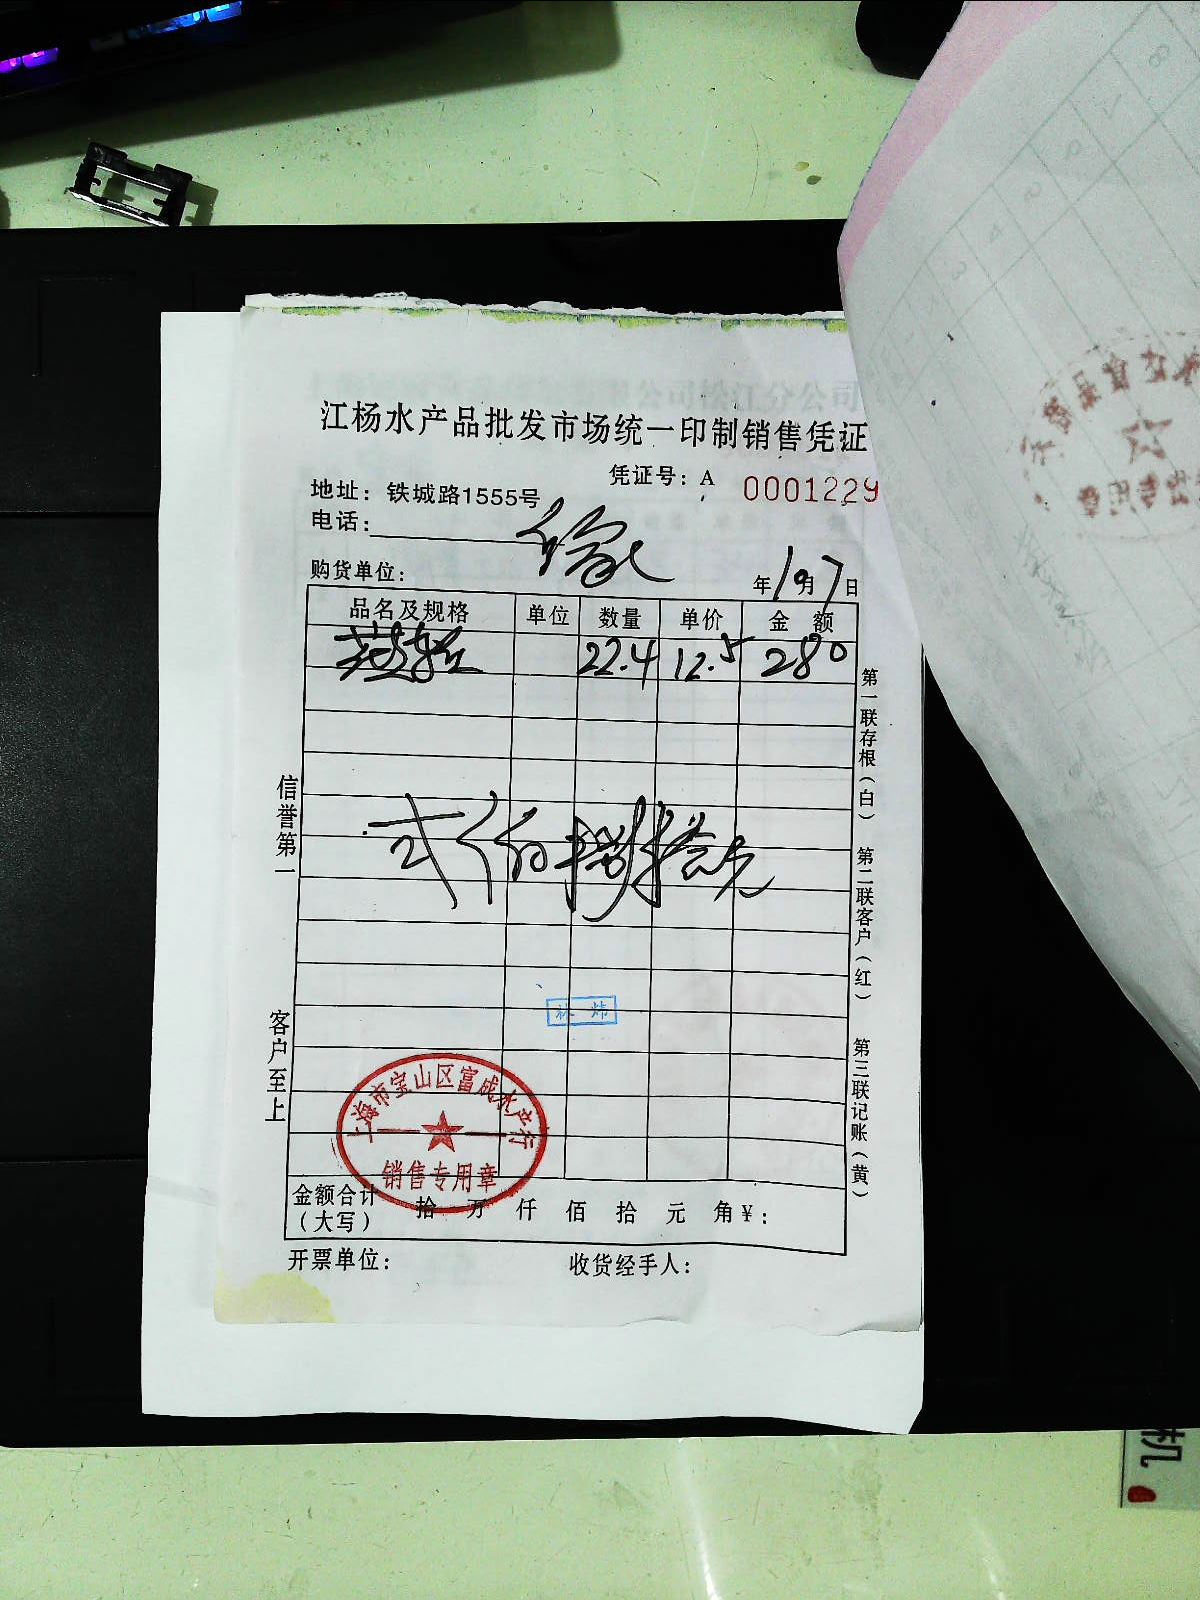 江杨水产品批发市场统一印制销售凭证
凭证号：A 0001229
地址：铁城路1555号
电话：
购货单位：
年10月7日
品名及规格 单位 数量 单价 金额
22.4 12.5 280
弍佰捌拾元
信誉第一
客户至上
第一联存根（白）
第二联客户（红）
第三联记账（黄）
林炜
上海市宝山区富成水产行
销售专用章
金额合计（大写） 拾 万 仟 佰 拾 元 角 ¥：
开票单位： 收货经手人：
机